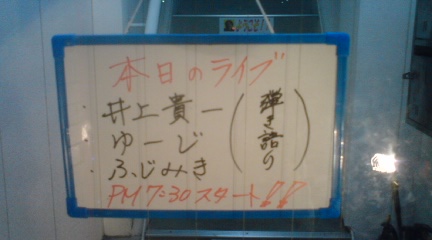 本日のライブ
・井上貴一
ゆーじ
・ふじみき
(弾き語り)
PM7:30スタート!!